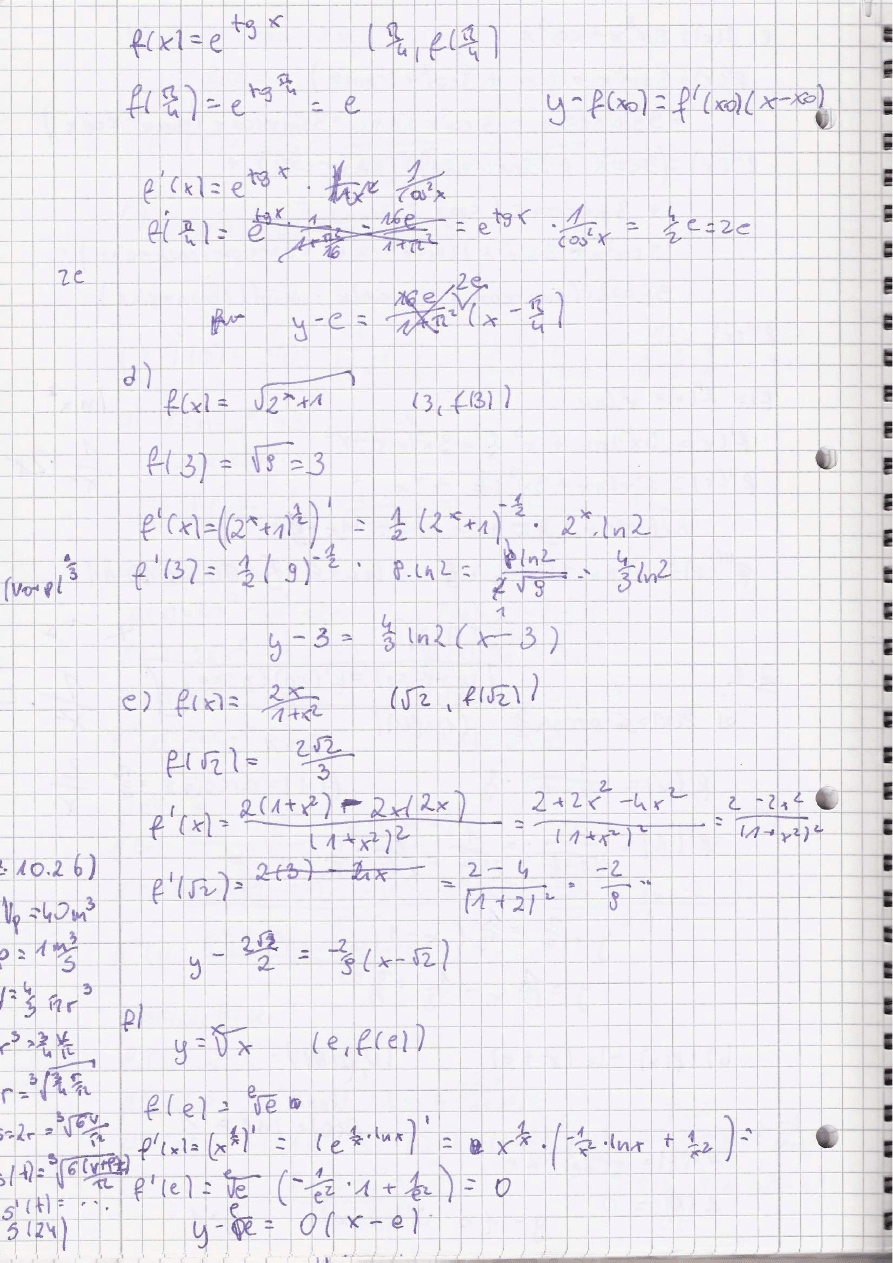 f(x) = e^{tg x}   (π/4, f(π/4))
f(π/4) = e^{tg π/4} = e   y - f(x0) = f'(x0)(x - x0)
f'(x) = e^{tg x} · 1/cos²x
f'(π/4) = e^{tg x} · 1/(1+π²/16) = 16e/(1+π²) = e^{tg x} · 1/cos²x = 4/2 e = 2e
2e
y - e = 16e/(1+π²) 2e (x - π/4)
d)
f(x) = √(2^x+1)   (3, f(3))
f(3) = √9 = 3
f'(x) = ((2^x+1)^{1/2})' = 1/2 (2^x+1)^{-1/2} · 2^x · ln2
f'(3) = 1/2 (9)^{-1/2} · 8 · ln2 = 8 ln2/(2√9) = 4/3 ln2
y - 3 = 4/3 ln2 (x - 3)
e) f(x) = 2x/(1+x²)   (√2, f(√2))
f(√2) = 2√2/3
f'(x) = (2(1+x²) - 2x(2x))/(1+x²)² = (2+2x²-4x²)/(1+x²)² = (2-2x²)/(1+x²)²
f'(√2) = 2(3) - 2x = (2-4)/(1+2)² = -2/9
y - 2√2/2 = -2/9 (x - √2)
f)
y = ˣ√x   (e, f(e))
f(e) = ᵉ√e
f'(x) = (x^{1/x})' = (e^{1/x · lnx})' = x^{1/x} · (-1/x² · lnx + 1/x²) =
f'(e) = ᵉ√e (-1/e² · 1 + 1/e²) = 0
y - ᵉ√e = 0(x - e)
10.26)
Vp = 40m³
= 1 m³/s
= 4/3 πr³
r³ = 3/4 V/π
r = ³√(3/4 V/π)
= 2r = ³√(6V/π)
s'(t) = ...
s(24)